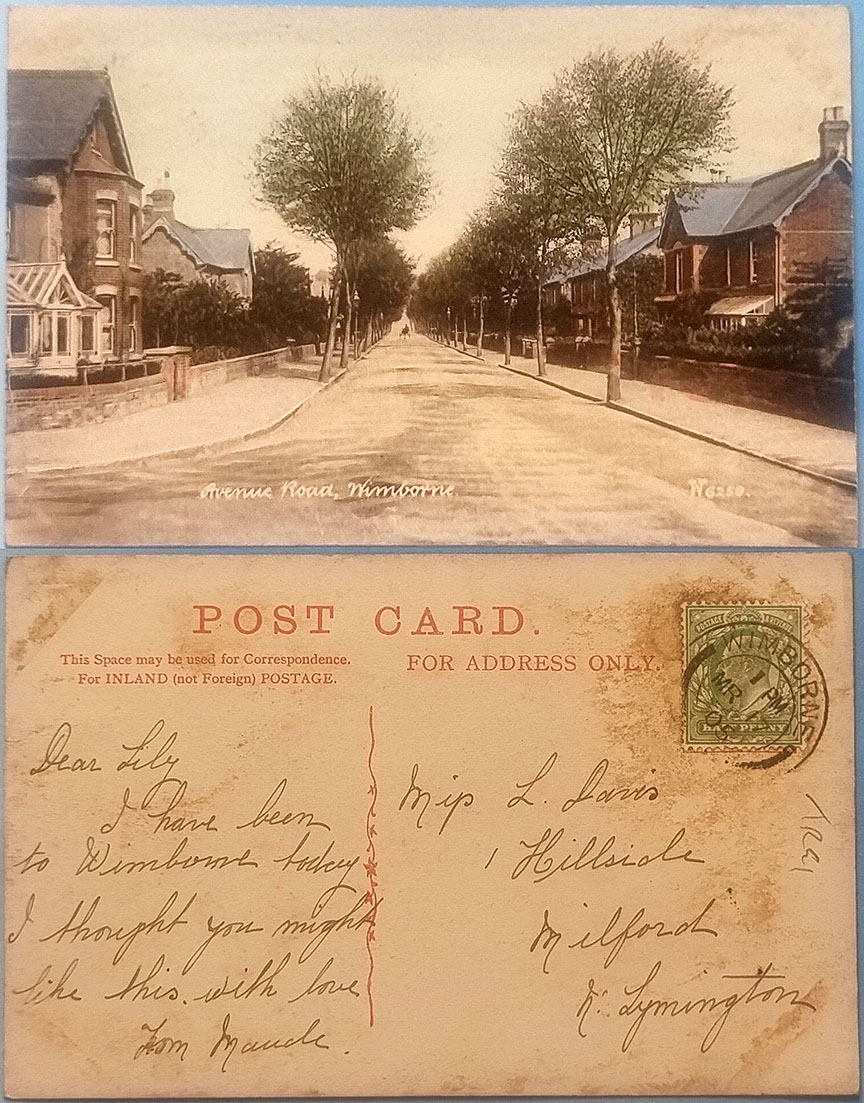 Avenue Road, Wimborne.
POST CARD.
This Space may be used for Correspondence.
For INLAND (not Foreign) POSTAGE.
FOR ADDRESS ONLY.
POSTAGE
HALFPENNY
WIMBORNE
1 PM
MR
05
Dear Lily
I have been
to Wimborne today
I thought you might
like this. with love
from Maude.
Miss L. Davis
1 Hillside
Milford
Nr. Lymington